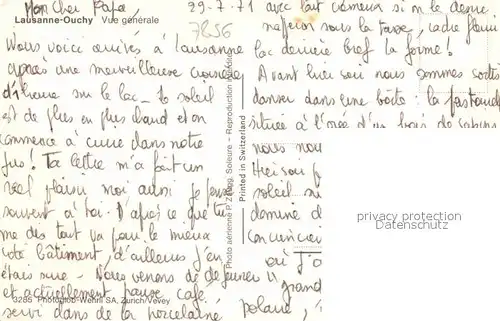 Mon Cher Papa, 29-7-71
Lausanne-Ouchy Vue générale
7856
Nous voici arrivés à Lausanne
après une merveilleuse croisière
d'1 heure sur le lac - le soleil
est de plus en plus chaud et on
commence à cuire dans notre
jus! Ta lettre m'a fait un
réel plaisir moi aussi je pense
souvent à toi. D'après ce que tu
me dis tout va pour le mieux
côté bâtiment, d'ailleurs j'en
étais sure - Nous venons de déjeuner
et actuellement pause café
servi dans de la porcelaine
3285 Photoglob-Wehrli SA, Zürich/Vevey
Photo aérienne P. Zaugg, Soleure - Reproduction
Printed in Switzerland
avec lait crémeux si on le
napperon sous la tasse, cadre
lac derrière bref la forme!
Avant hier soir nous sommes
danser dans une boîte: la
située à l'orée d'un bois de
nous nous
Hier soir
soleil
domine
où
grand
privacy protection
Datenschutz